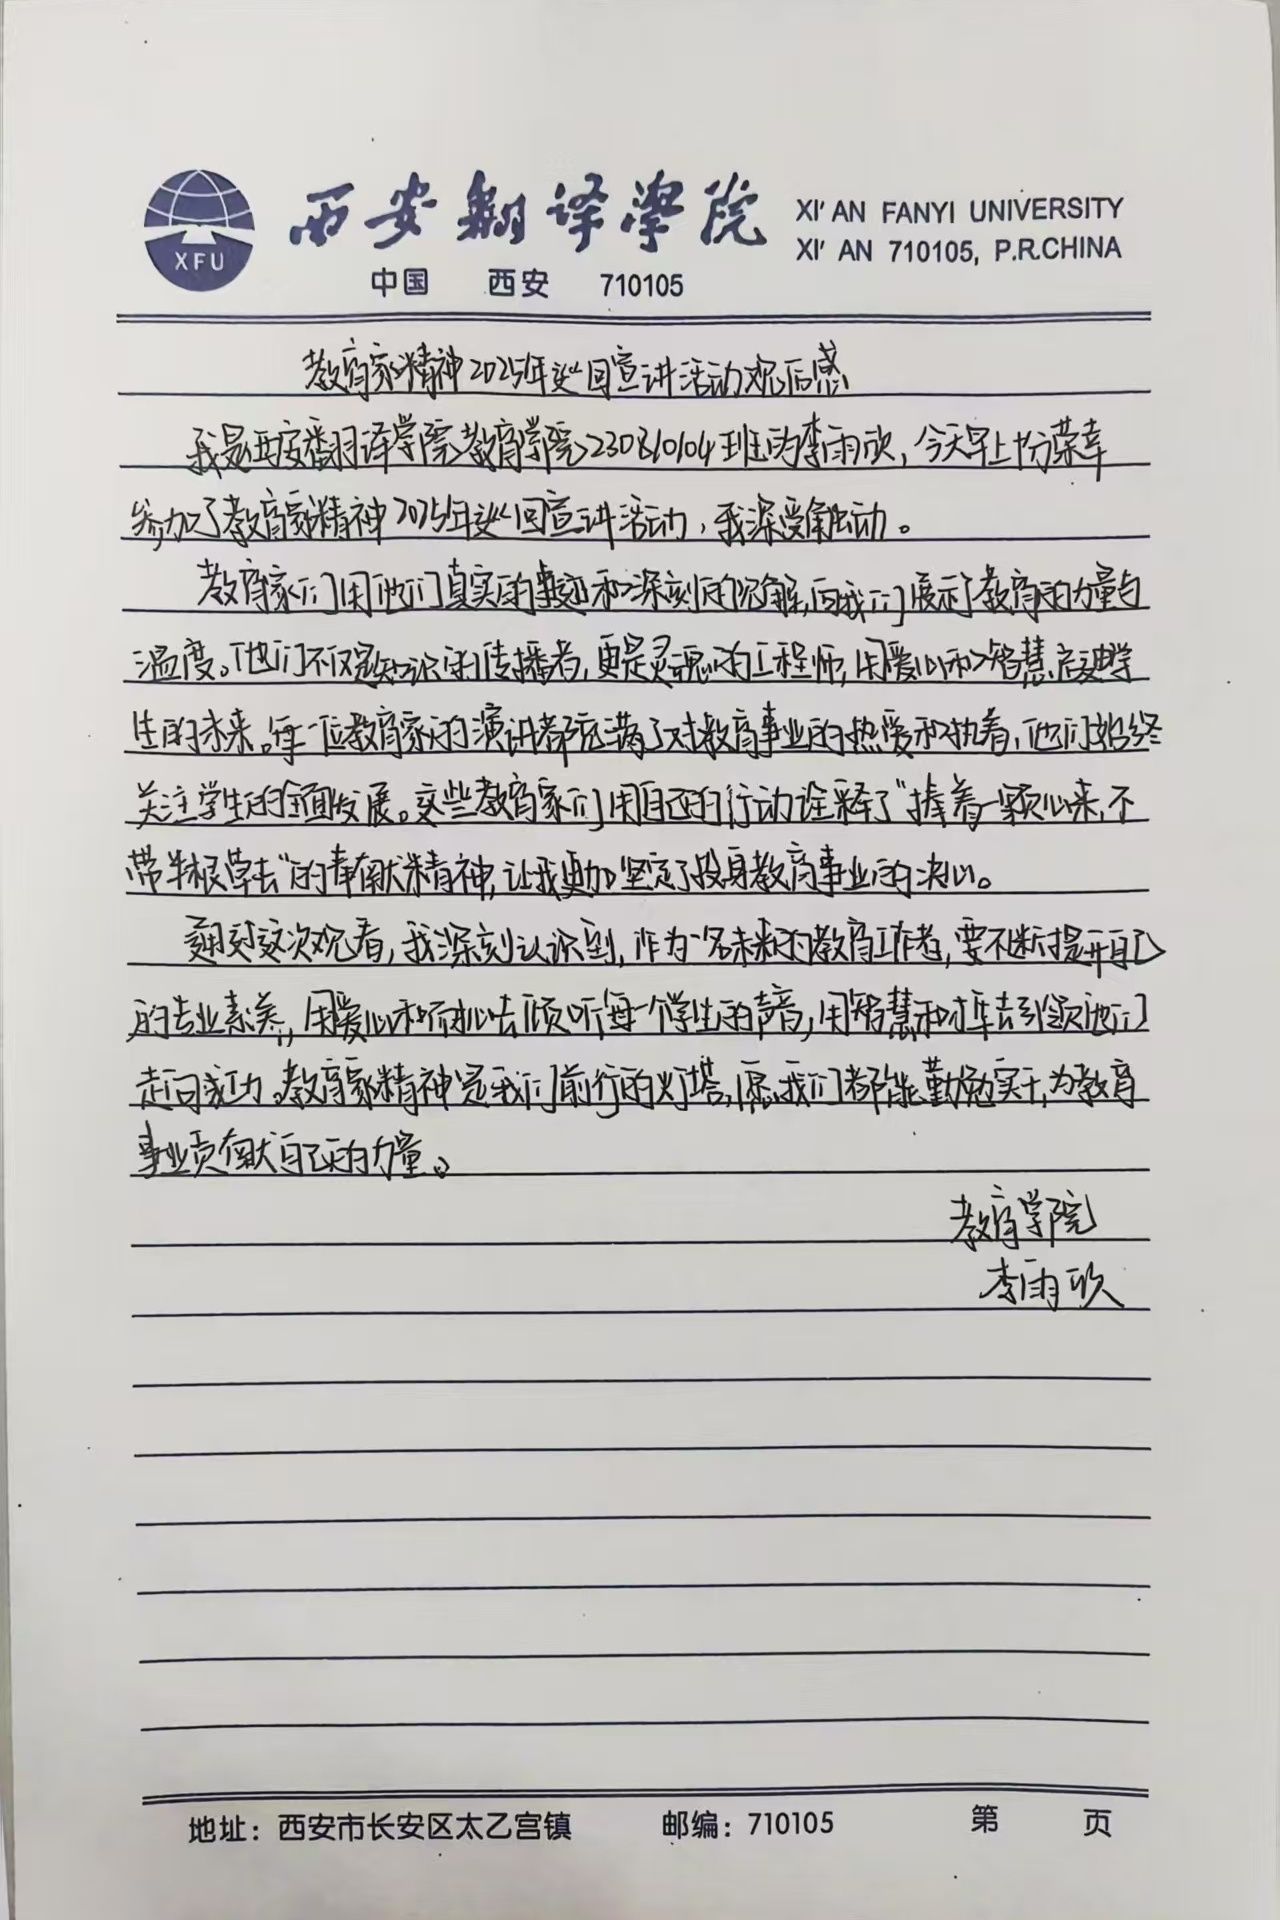 XFU
西安翻译学院
XI'AN FANYI UNIVERSITY
XI'AN 710105, P.R.CHINA
中国 西安 710105
教育家精神2025年巡回宣讲活动观后感
我是西安翻译学院教育学院230810104班的李雨欣，今天早上十分荣幸
参加了教育家精神2025年巡回宣讲活动，我深受触动。
教育家们用他们真实的事迹和深刻的见解，向我们展示了教育的力量与
温度。他们不仅是知识的传播者，更是灵魂的工程师，用爱心和智慧启迪学
生的未来。每一位教育家的演讲都充满了对教育事业的热爱和执着，他们始终
关注学生的全面发展。这些教育家们用自己的行动诠释了“捧着一颗心来，不
带半根草去”的奉献精神，让我更加坚定了投身教育事业的决心。
这次观看，我深刻认识到，作为一名未来的教育工作者，要不断提升自己
的专业素养，用爱心和耐心去倾听每一个学生的声音，用智慧和去引领他们
走向成功。教育家精神是我们前行的灯塔，愿我们都能勤勉实干，为教育
事业贡献自己的力量。
教育学院
李雨欣
地址：西安市长安区太乙宫镇 邮编：710105 第 页